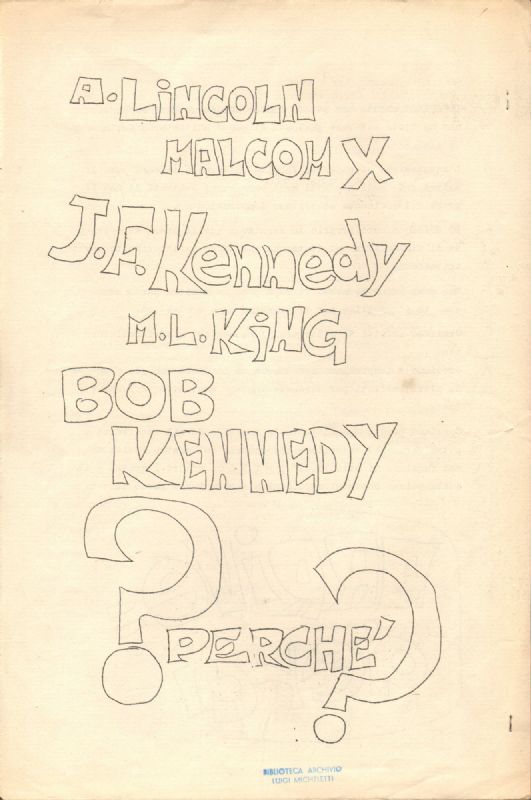 A. LiNCOLN
MALCOM X
J.F. Kennedy
M.L. KiNG
BOB
KENNEDY
? PERCHE' ?
BIBLIOTECA ARCHIVIO
LUIGI MICHELETTI